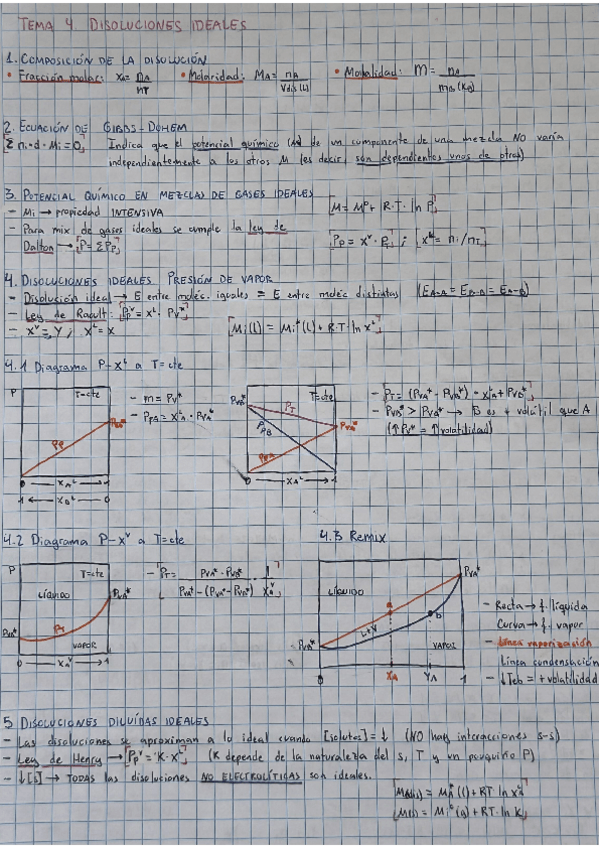 TEMA 4. DISOLUCIONES IDEALES
1. COMPOSICIÓN DE LA DISOLUCIÓN
• Fracción molar: xA = nA / nT • Molaridad: MA = nA / Vdis (L) • Molalidad: m = nA / mds (Kg)
2. ECUACIÓN DE GIBBS-DUHEM
[Σ ni · d · Mi = 0] Indica que el potencial químico (M) de un componente de una mezcla NO varía
independientemente a los otros M (es decir, son dependientes unos de otros)
3. POTENCIAL QUÍMICO EN MEZCLAS DE GASES IDEALES
- Mi → propiedad INTENSIVA [M = Mº + R·T· ln P]
- Para mix de gases ideales se cumple la ley de
Dalton → [P = Σ PP] [PP = xᵛ · PT] ; [xᴸ = ni / nT]
4. DISOLUCIONES IDEALES PRESIÓN DE VAPOR
- Disolución ideal → E entre moléc. iguales = E entre moléc distintas (EA-A = EB-B = EA-B)
- Ley de Raoult: [PPᵛ = xᴸ · Pv*]
- xᵛ = Y, xᴸ = x [Mi(l) = Mi*(l) + R·T· ln xᴸ]
4.1 Diagrama P-xᴸ a T=cte
P T=cte PP
- m = Pv*
- PPA = xᴸA · PvA*
0 XAᴸ 1
1 XBᴸ 0
PvB* T=cte PT PPB PvA* PPA
0 XAᴸ 1
- PT = (PvA* - PvB*) · xᴸA + PvB*
- PvB* > PvA* → B es + volátil que A
(↑Pv* = ↑volatilidad)
4.2 Diagrama P-xᵛ a T=cte
P T=cte LÍQUIDO PvA* PT VAPOR
0 XAᵛ 1
4.3 Remix
LÍQUIDO PvA* a b L+V VAPOR PvB*
0 XA YA 1
- Recta → f. líquida
Curva → f. vapor
- Línea vaporización
Línea condensación
- ↓Teb = + volatilidad
5. DISOLUCIONES DILUÍDAS IDEALES
- Las disoluciones se aproximan a lo ideal cuando [soluto] = ↓ (NO hay interacciones s-s)
- Ley de Henry → [PPᵛ = K · Xᴸ] (K depende de la naturaleza del s, T y un poquiño P)
- ↓[s] → TODAS las disoluciones NO ELECTROLÍTICAS son ideales.